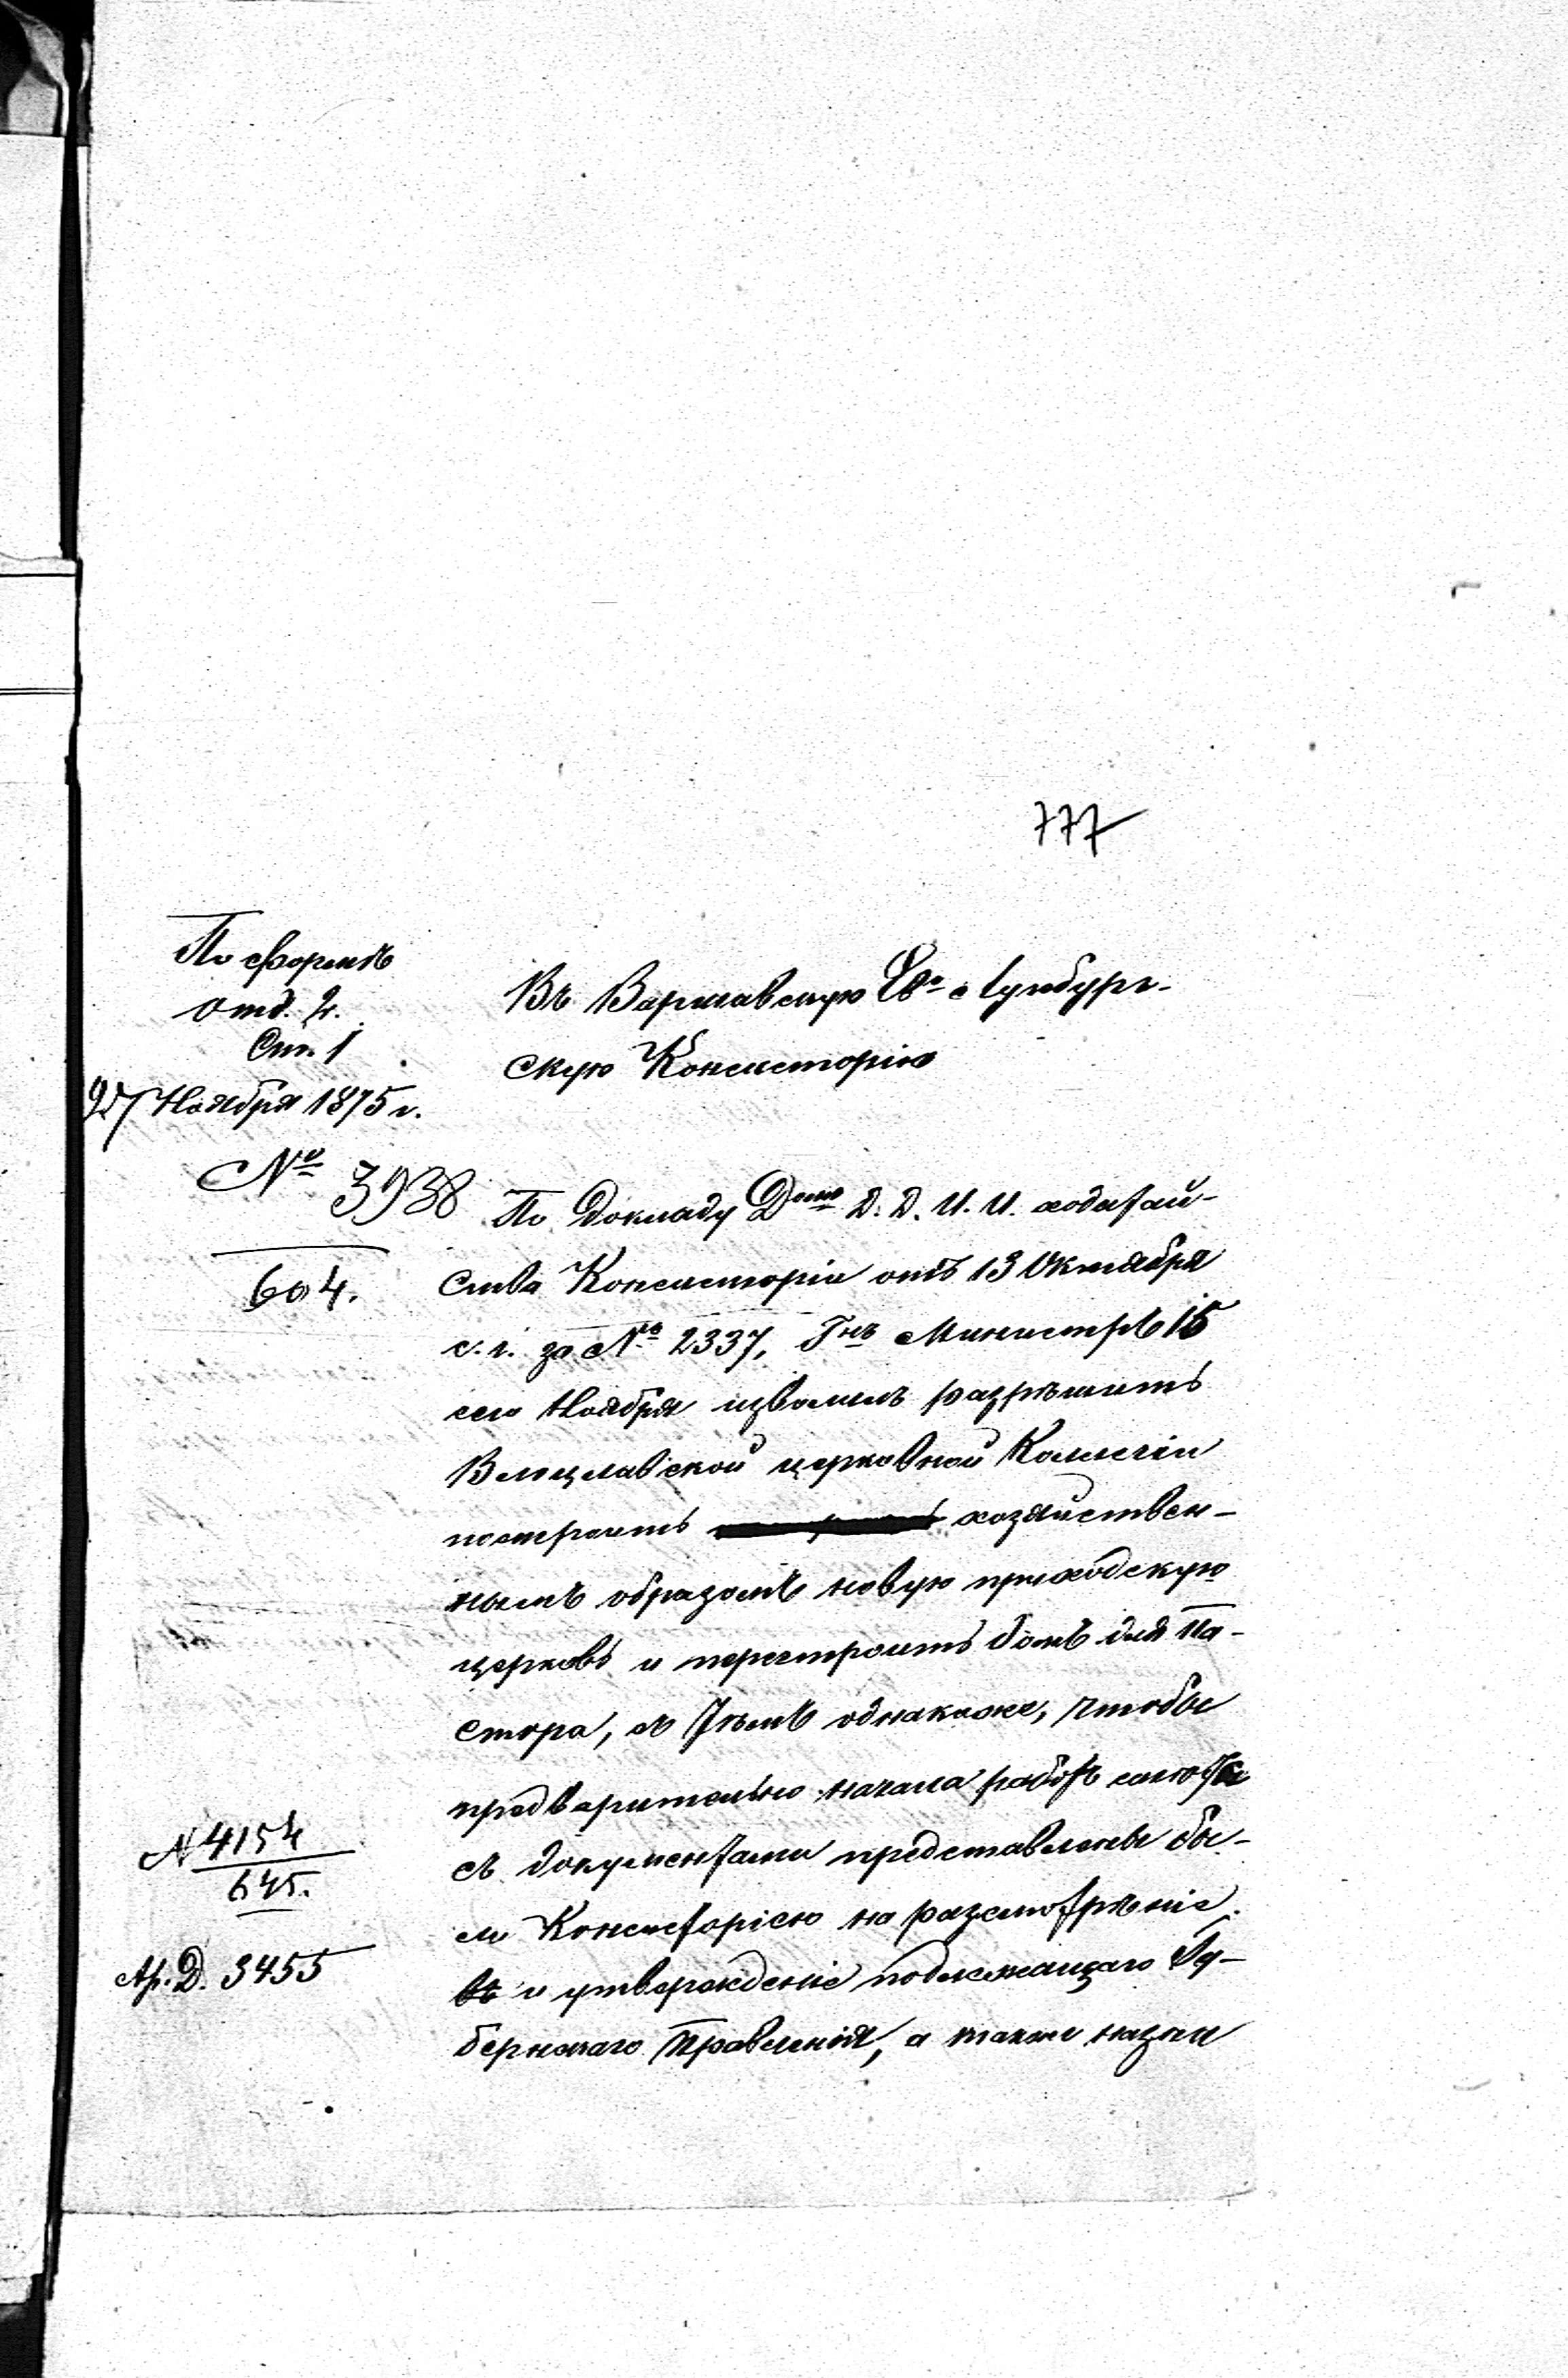 777
По формѣ
отд. 2.
Ст. 1
27 Ноября 1875 г.
№ 3938
604.
Въ Варшавскую Ев. Аугсбург-
скую Консисторію
По докладу Д. Д. И. И. ходатай-
ства Консисторіи отъ 13 Октября
с. г. за № 2337, Гнъ Министръ 15
сего Ноября изволилъ разрѣшить
Влоцлавской церковной Коллегіи
построить хозяйствен-
нымъ образомъ новую приходскую
церковь и перестроить домъ для Па-
стора, съ тѣмъ однакоже, чтобы
предварительно начала работъ смѣты
съ документами представлены бы-
ли Консисторіею на разсмотрѣніе
и утвержденіе подлежащаго Гу-
бернскаго Правленія, а также
N 4154
645.
Ар. Д. 3455